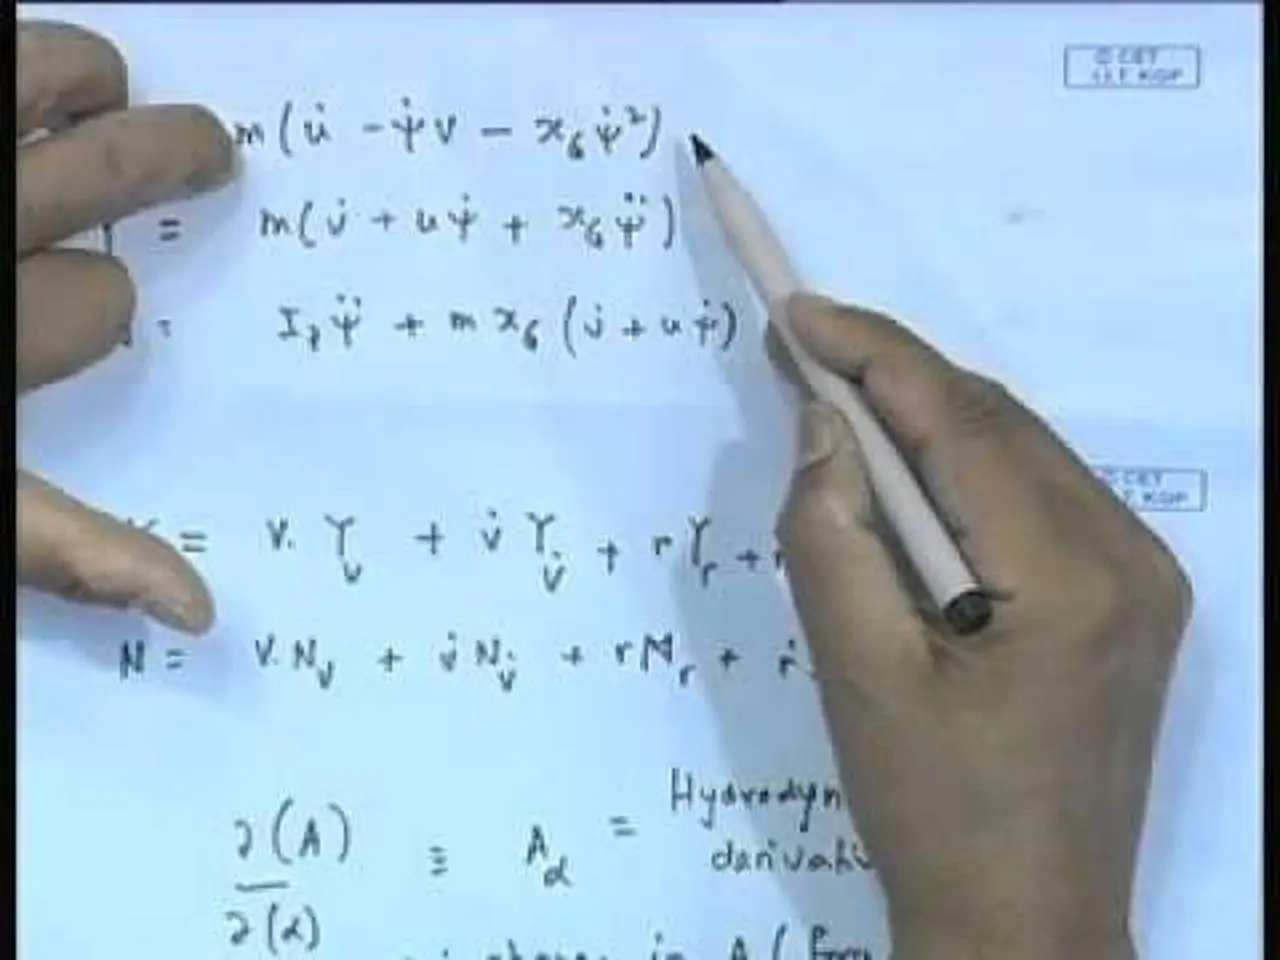 © CET
I.I.T. KGP
m(u̇ - ψ̇v - x_G ψ̇²)
= m(v̇ + uψ̇ + x_G ψ̈)
I_z ψ̈ + m x_G (v̇ + uψ̇)
© CET
I.T. KGP
= v. Y_v + v̇ Y_v̇ + r Y_r +
N = v. N_v + v̇ N_v̇ + r N_r + ṙ
∂(A) / ∂(α) ≡ A_α = Hydrodyn
derivati
change in A (